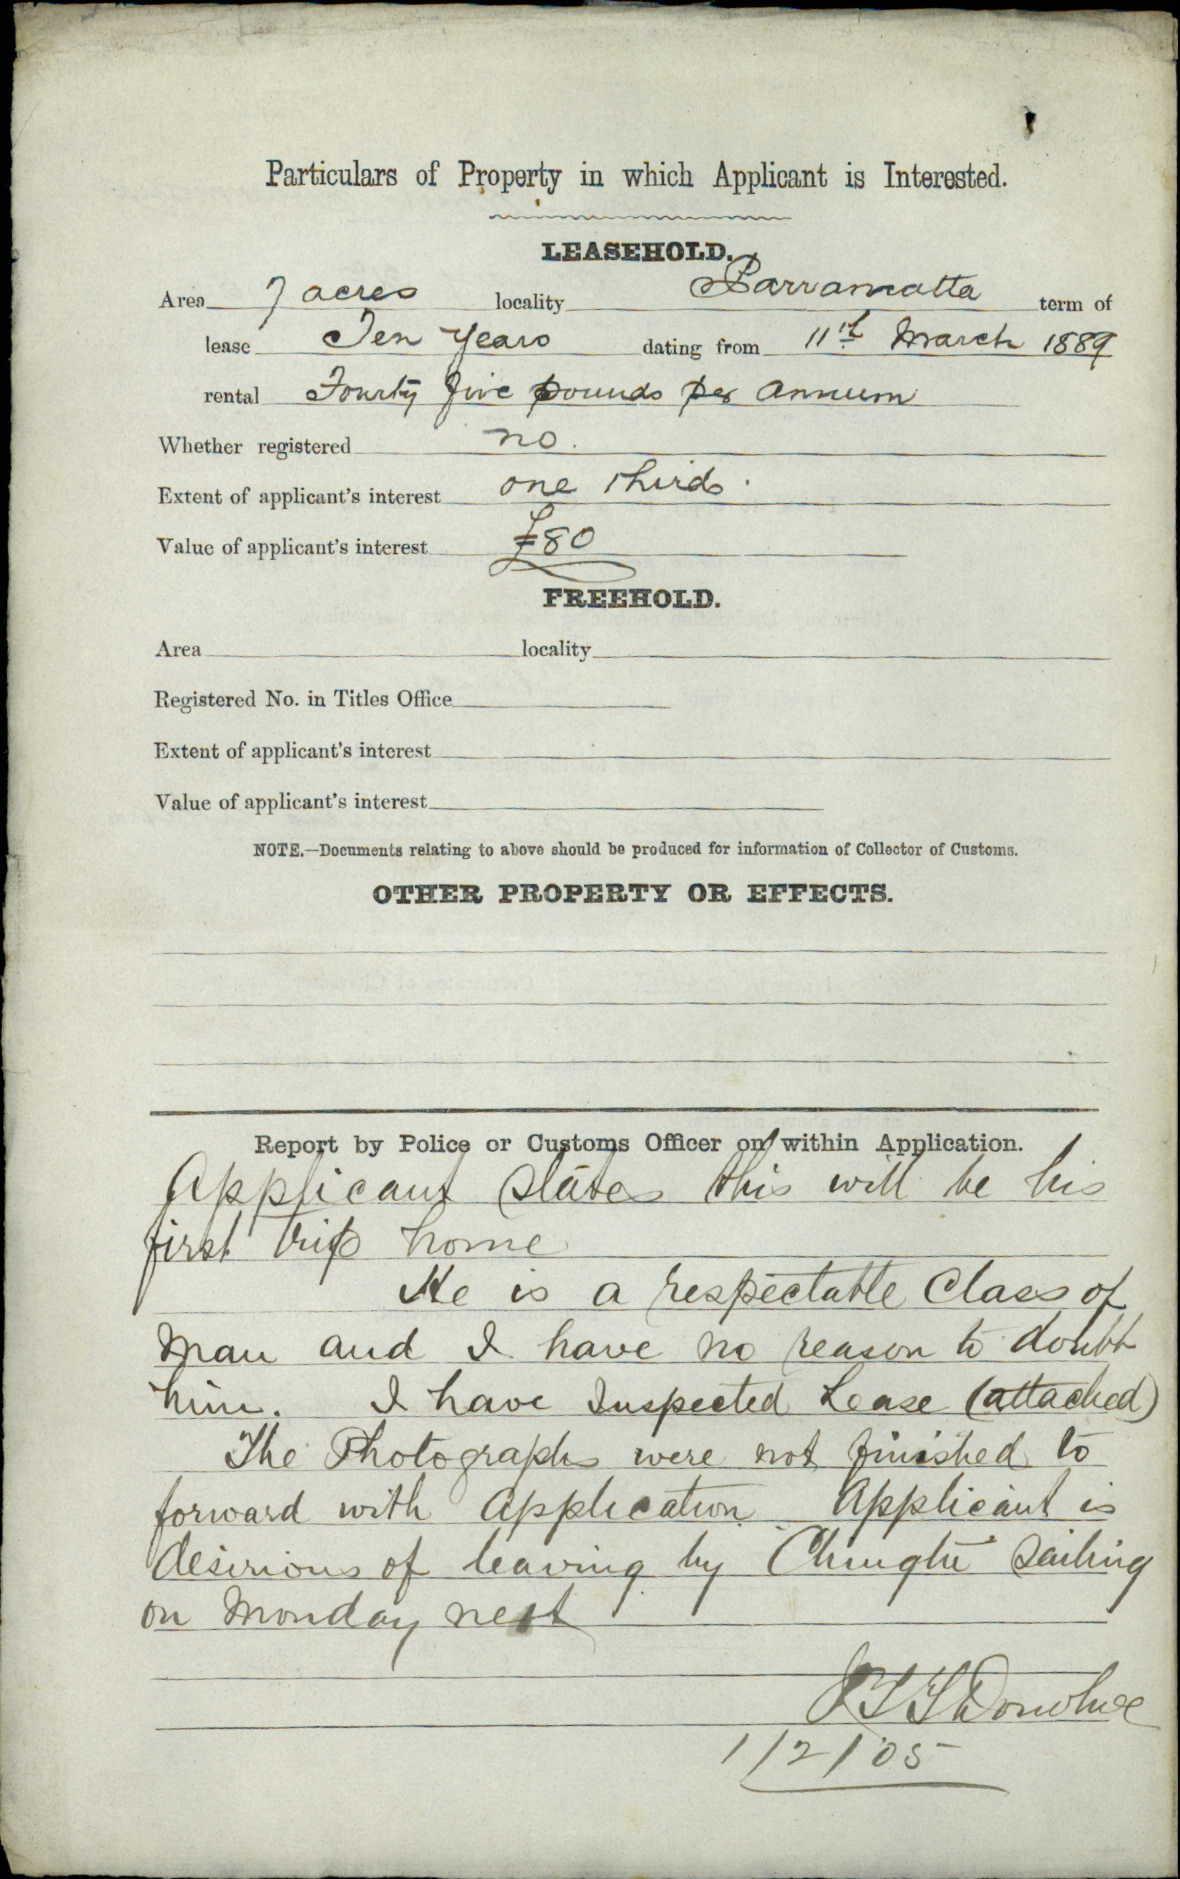 Particulars of Property in which Applicant is Interested.
LEASEHOLD.
Area 7 acres locality Parramatta term of
lease Ten Years dating from 11th March 1889
rental Fourty five pounds per Annum
Whether registered no.
Extent of applicant's interest one thirds.
Value of applicant's interest £80
FREEHOLD.
Area locality
Registered No. in Titles Office
Extent of applicant's interest
Value of applicant's interest
NOTE.—Documents relating to above should be produced for information of Collector of Customs.
OTHER PROPERTY OR EFFECTS.
Report by Police or Customs Officer on within Application.
Applicant states this will be his
first trip home
He is a respectable Class of
Man and I have no reason to doubt
him. I have Inspected Lease (attached)
The Photographs were not finished to
forward with Application Applicant is
desirious of leaving by "Chingtu" Sailing
on Monday next
Donohue
1/2/05